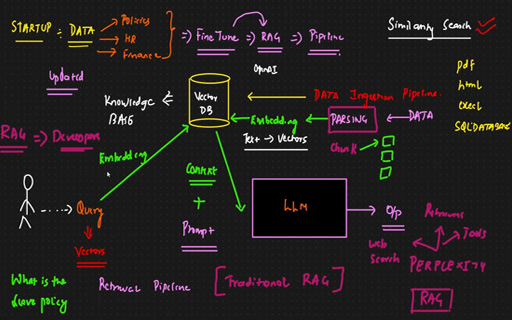 STARTUP = DATA
Policies
HR
Finance
=> Fine Tune => RAG => Pipeline
Similarity Search
OpenAI
updated
Knowledge
BASE
Vector
DB
DATA Ingestion Pipeline
pdf
html
excel
SQL DATABASE
Embedding
PARSING
DATA
Text → Vectors
Chunk
RAG => Developers
Embedding
Context
+
Prompt
LLM
O/p
Query
Vectors
Web
Search
Tools
PERPLEXITY
RAG
What is the
leave policy
Retrieval Pipeline
[Traditional RAG]